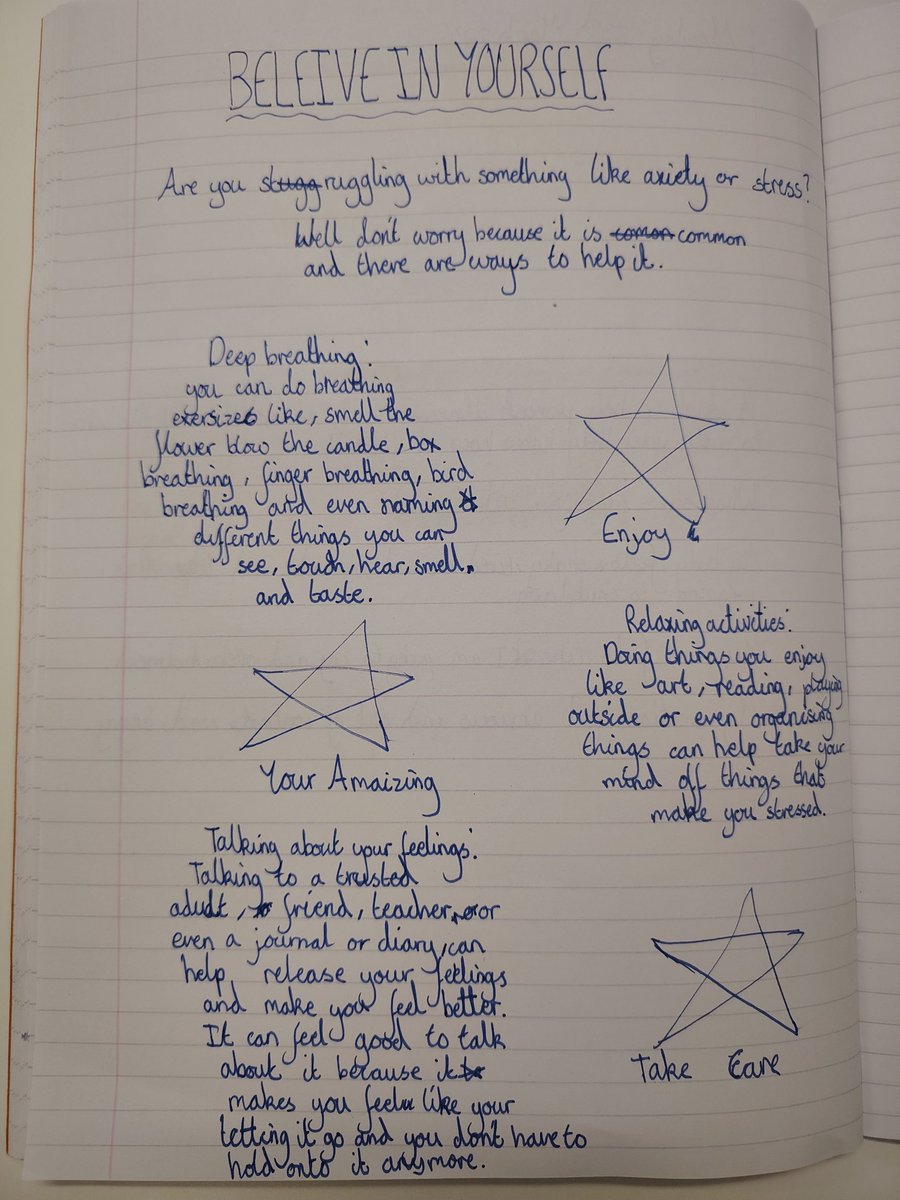 BELEIVE IN YOURSELF
Are you stuggruggling with something like axiety or stress?
Well don't worry because it is comon common
and there are ways to help it.
Deep breathing:
you can do breathing
exersizes like, smell the
flower blow the candle, box
breathing, finger breathing, bird
breathing and even naming
different things you can
see, touch, hear, smell,
and taste.
Enjoy
Relaxing activities:
Doing things you enjoy
like art, reading, playing
outside or even organising
things can help take your
mind off things that
make you stressed.
Your Amaizing
Talking about your feelings:
Talking to a trusted
adult, friend, teacher, or
even a journal or diary, can
help release your feelings
and make you feel better.
It can feel good to talk
about it because it
makes you feel like your
letting it go and you don't have to
hold onto it anymore.
Take Care